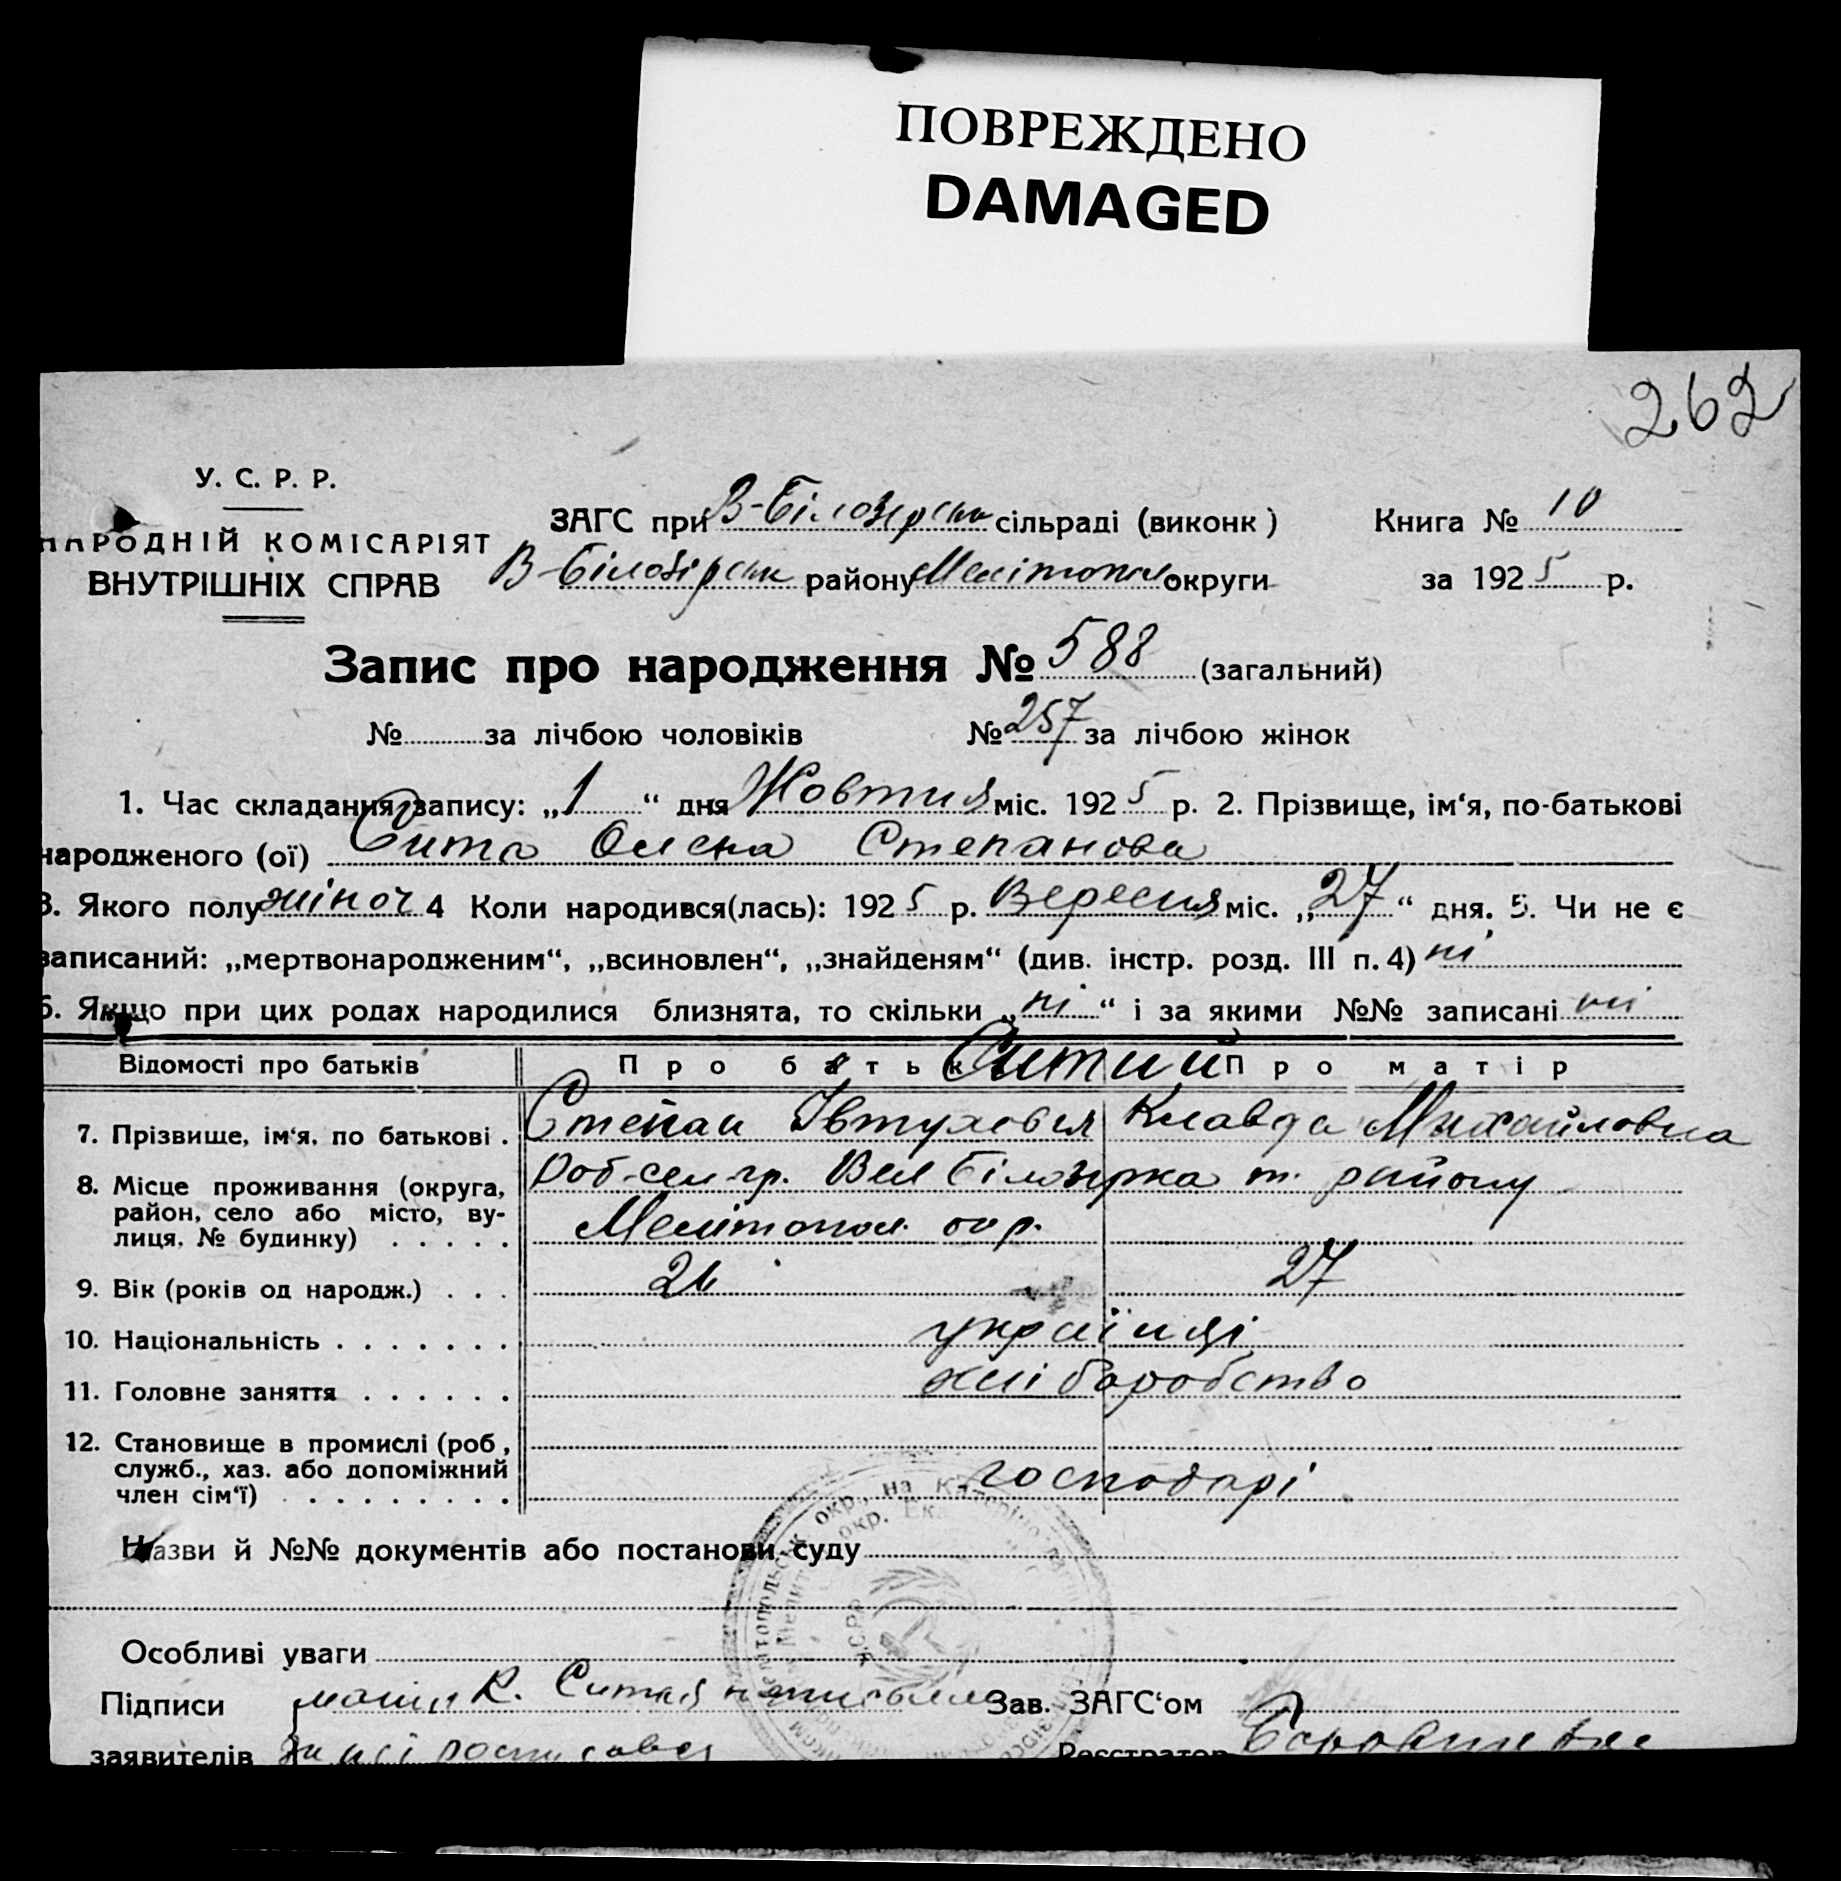 ПОВРЕЖДЕНО
DAMAGED
262
У. С. Р. Р.
НАРОДНІЙ КОМІСАРІЯТ
ВНУТРІШНІХ СПРАВ
ЗАГС при В-Білозірськ сільраді (виконк)
Книга № 10
В-Білозірськ району Мелітопол округи
за 1925 р.
Запис про народження № 588 (загальний)
№ за лічбою чоловіків № 257 за лічбою жінок
1. Час складання запису: „1“ дня Жовтня міс. 1925 р. 2. Прізвище, ім‘я, по-батькові
народженого (ої) Сита Олена Степанова
3. Якого полу жіноч 4 Коли народився(лась): 1925 р. Вересня міс. „27“ дня. 5. Чи не є
записаний: „мертвонародженим“, „всиновлен“, „знайденям“ (див. інстр. розд. III п. 4) ні
6. Якщо при цих родах народилися близнята, то скільки „ні“ і за якими №№ записані ні
Відомості про батьків Про батьк Ситий Про матір
7. Прізвище, ім‘я, по батькові . Степан Івтухович Клавда Михайловна
8. Місце проживання (округа, район, село або місто, вулиця, № будинку) . . . . . Роб-сел-гр. Вел Білозірка т. району
Мелітопол. окр.
9. Вік (років од народж.) . . . 26 27
10. Національність . . . . . . . українці
11. Головне заняття . . . . . . хліборобство
12. Становище в промислі (роб,
служб., хаз. або допоміжний
член сім‘ї) . . . . . . . . . господарі
Назви й №№ документів або постанови суду
Особливі уваги
Підписи К. Ситая Зав. ЗАГС‘ом
заявителів Реєстратор